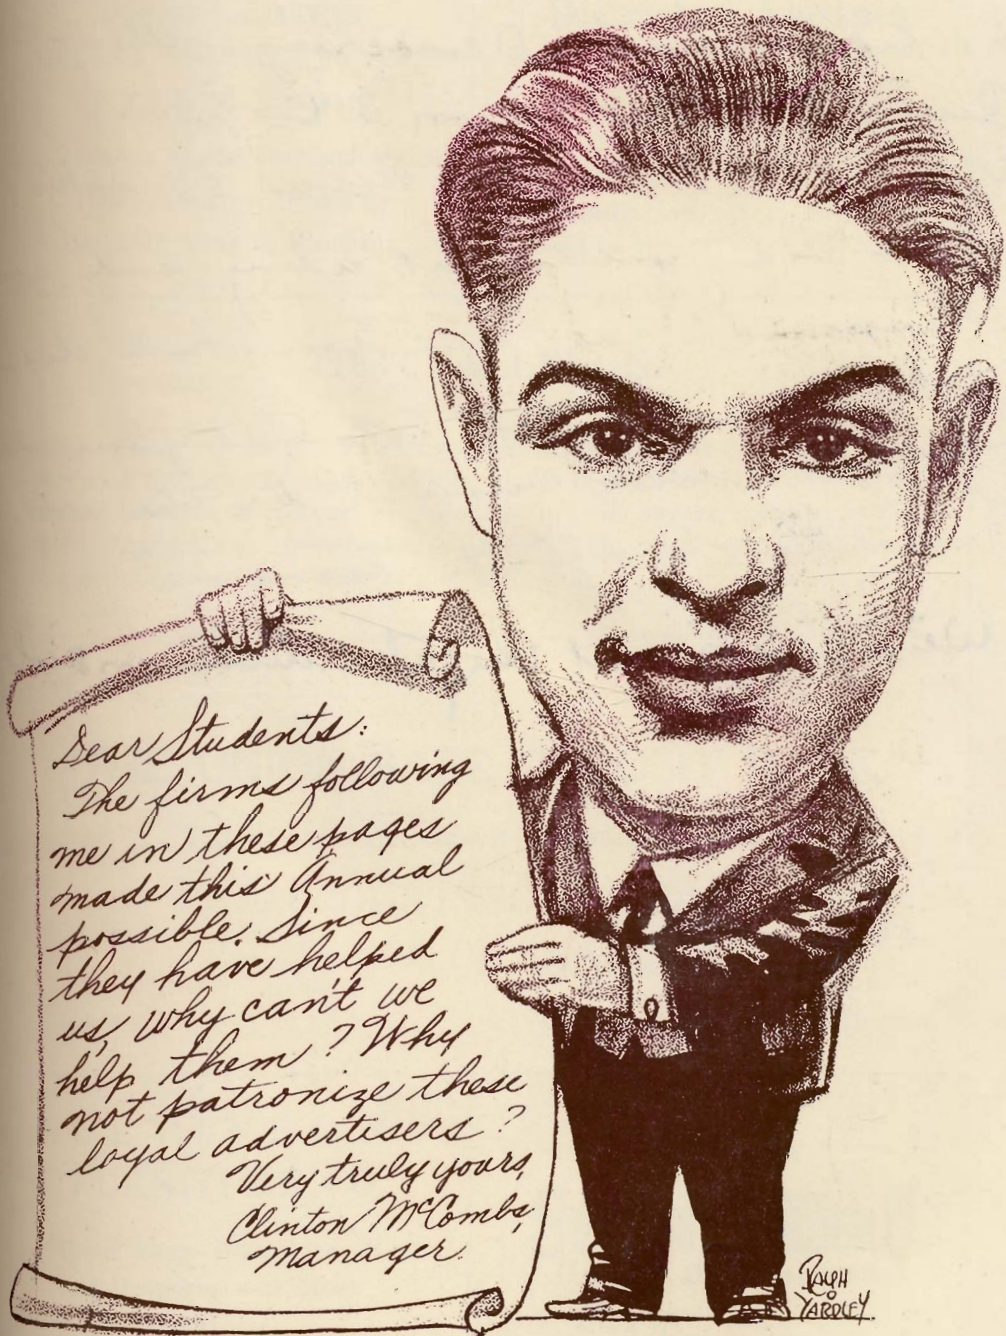 Dear Students:
The firms following
me in these pages
made this Annual
possible. Since
they have helped
us, why can't we
help them? Why
not patronize these
loyal advertisers?
Very truly yours,
Clinton McCombs,
Manager.
RALPH
O
YARDLEY